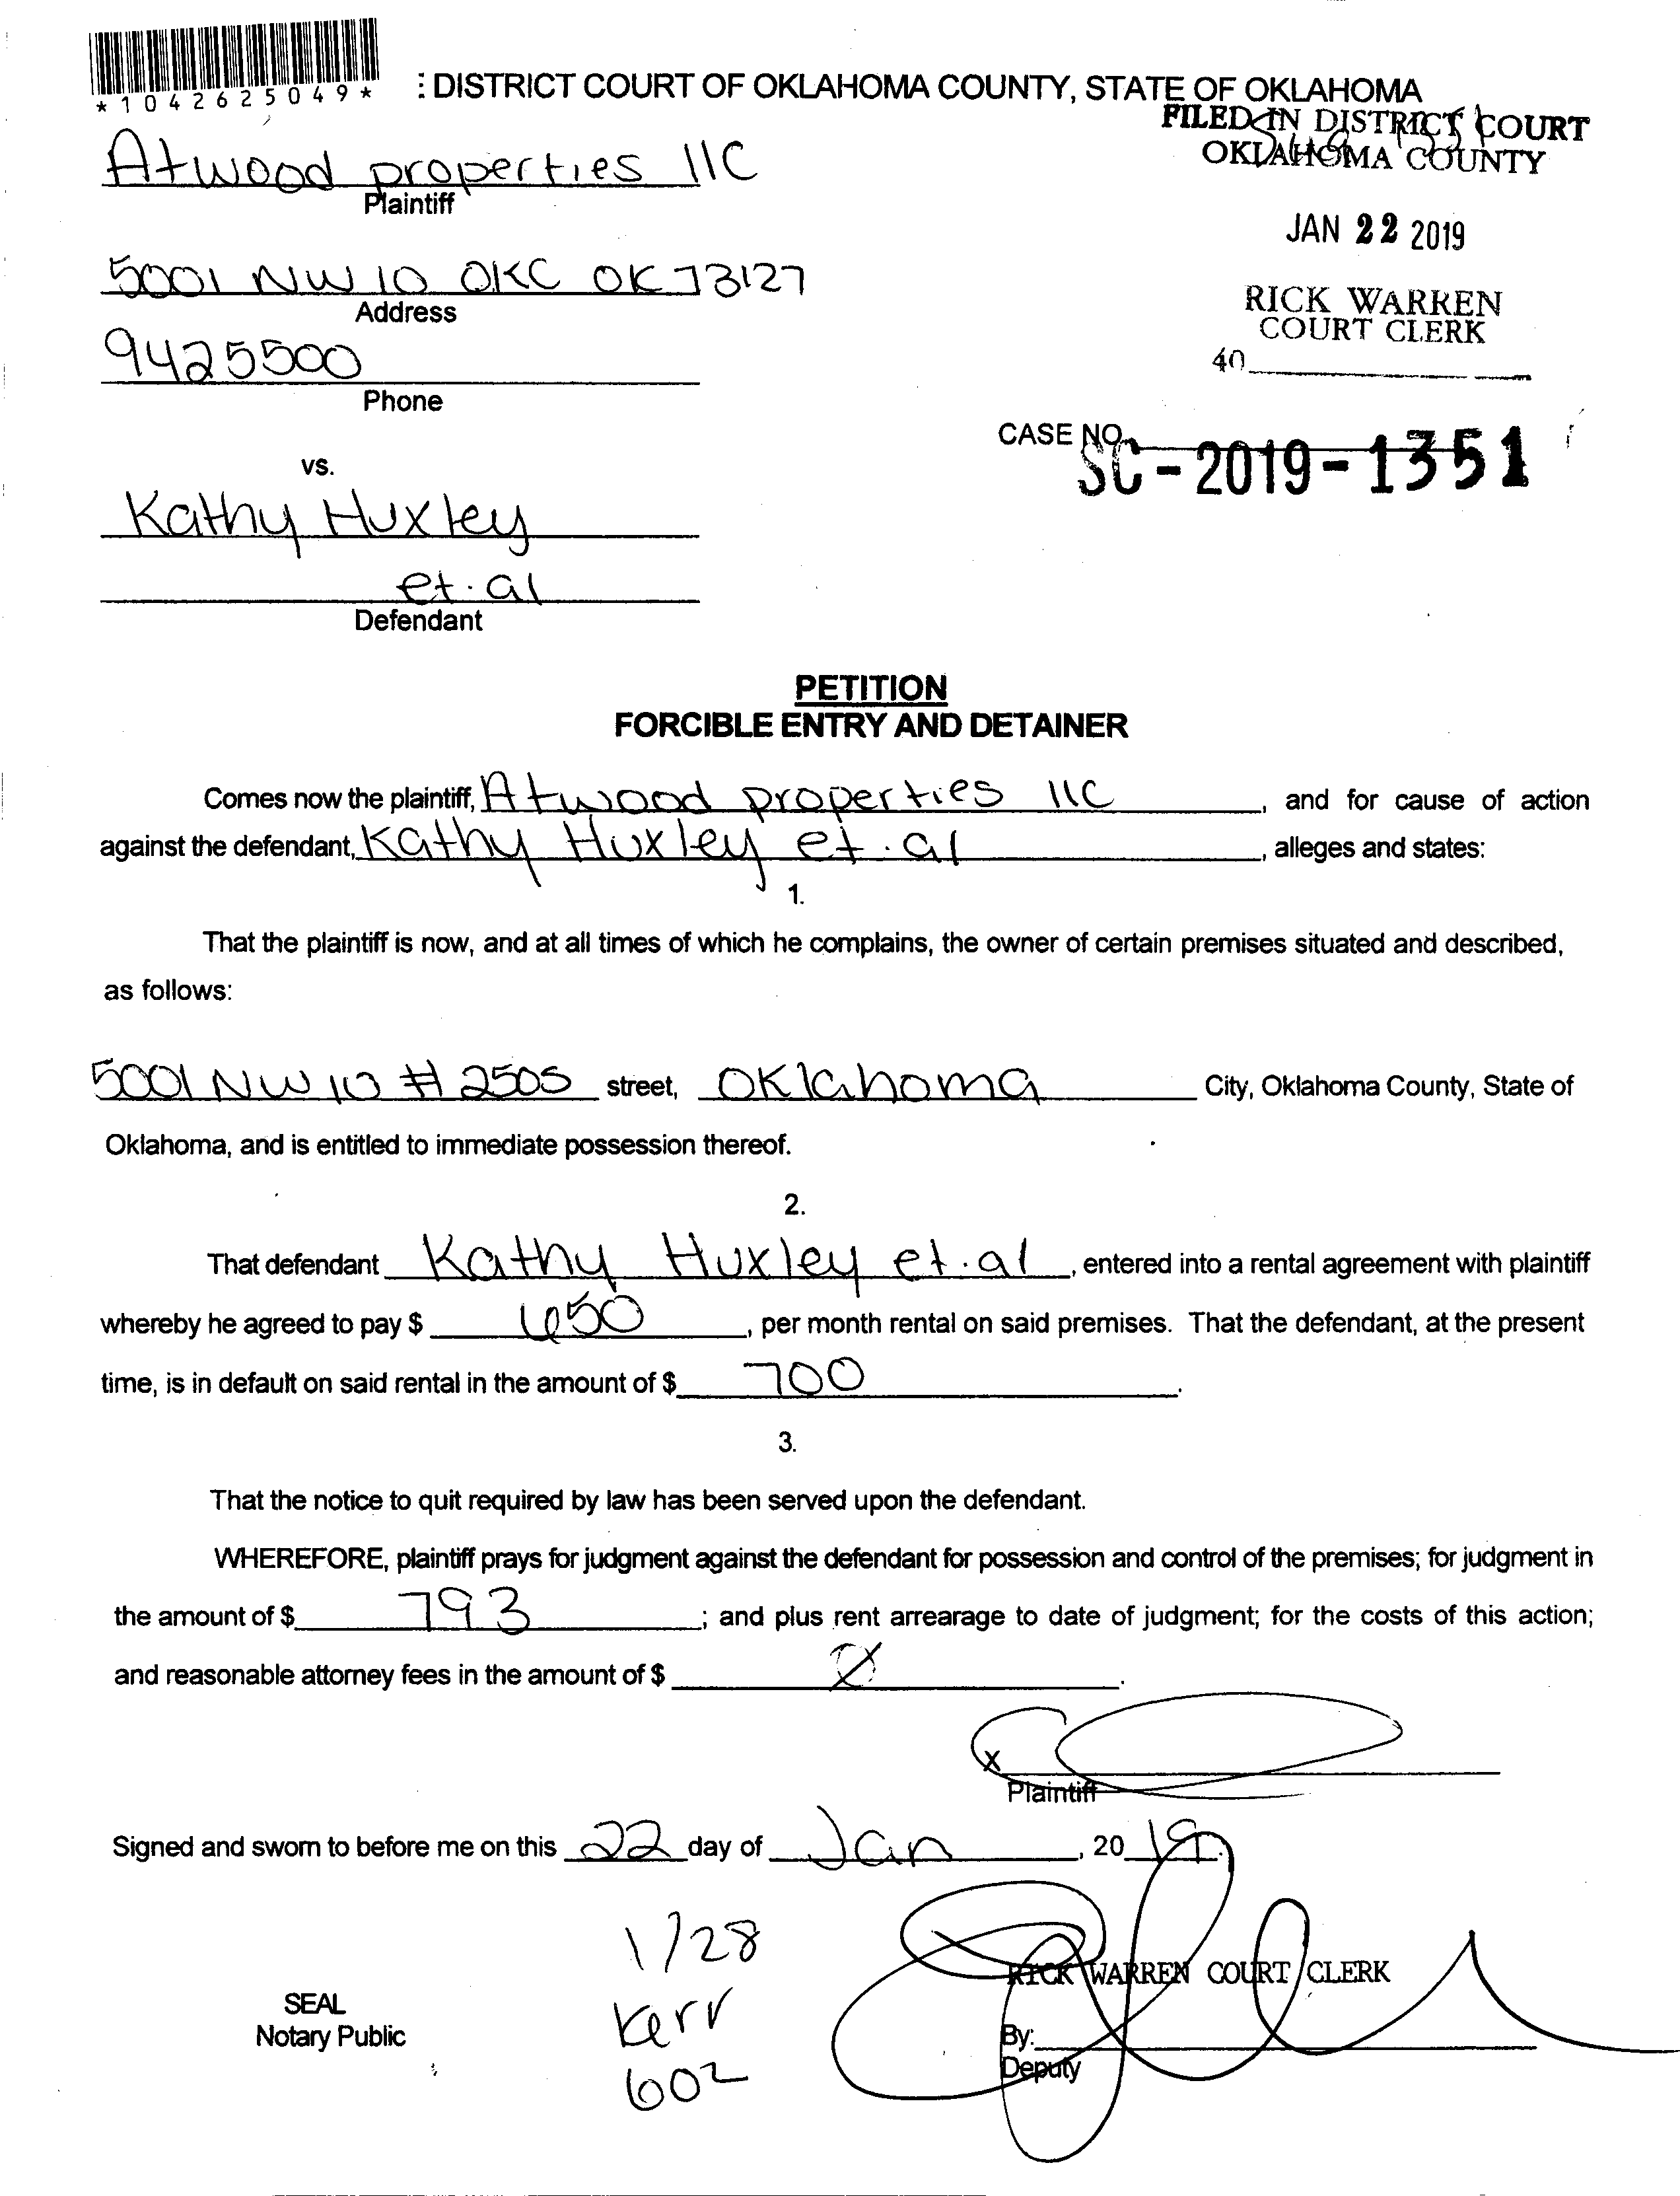 *1042625049*
: DISTRICT COURT OF OKLAHOMA COUNTY, STATE OF OKLAHOMA
FILED IN DISTRICT COURT
OKLAHOMA COUNTY
Atwood properties llC
Plaintiff
JAN 22 2019
5001 NW 10 OKC OK 73127
Address
RICK WARREN
COURT CLERK
40
9425500
Phone
CASE NO.
SC-2019-1351
vs.
Kathy Huxley
et. al
Defendant
PETITION
FORCIBLE ENTRY AND DETAINER
Comes now the plaintiff, Atwood properties llC, and for cause of action
against the defendant, Kathy Huxley et. al, alleges and states:
1.
That the plaintiff is now, and at all times of which he complains, the owner of certain premises situated and described,
as follows:
5001 NW 10 # 2505 street, Oklahoma City, Oklahoma County, State of
Oklahoma, and is entitled to immediate possession thereof.
2.
That defendant Kathy Huxley et. al, entered into a rental agreement with plaintiff
whereby he agreed to pay $ 650, per month rental on said premises. That the defendant, at the present
time, is in default on said rental in the amount of $ 700.
3.
That the notice to quit required by law has been served upon the defendant.
WHEREFORE, plaintiff prays for judgment against the defendant for possession and control of the premises; for judgment in
the amount of $ 793; and plus rent arrearage to date of judgment; for the costs of this action;
and reasonable attorney fees in the amount of $ .
x
Plaintiff
Signed and sworn to before me on this 22 day of Jan, 2019.
1/28
RICK WARREN COURT CLERK
SEAL
Notary Public
Kerr
602
By:
Deputy